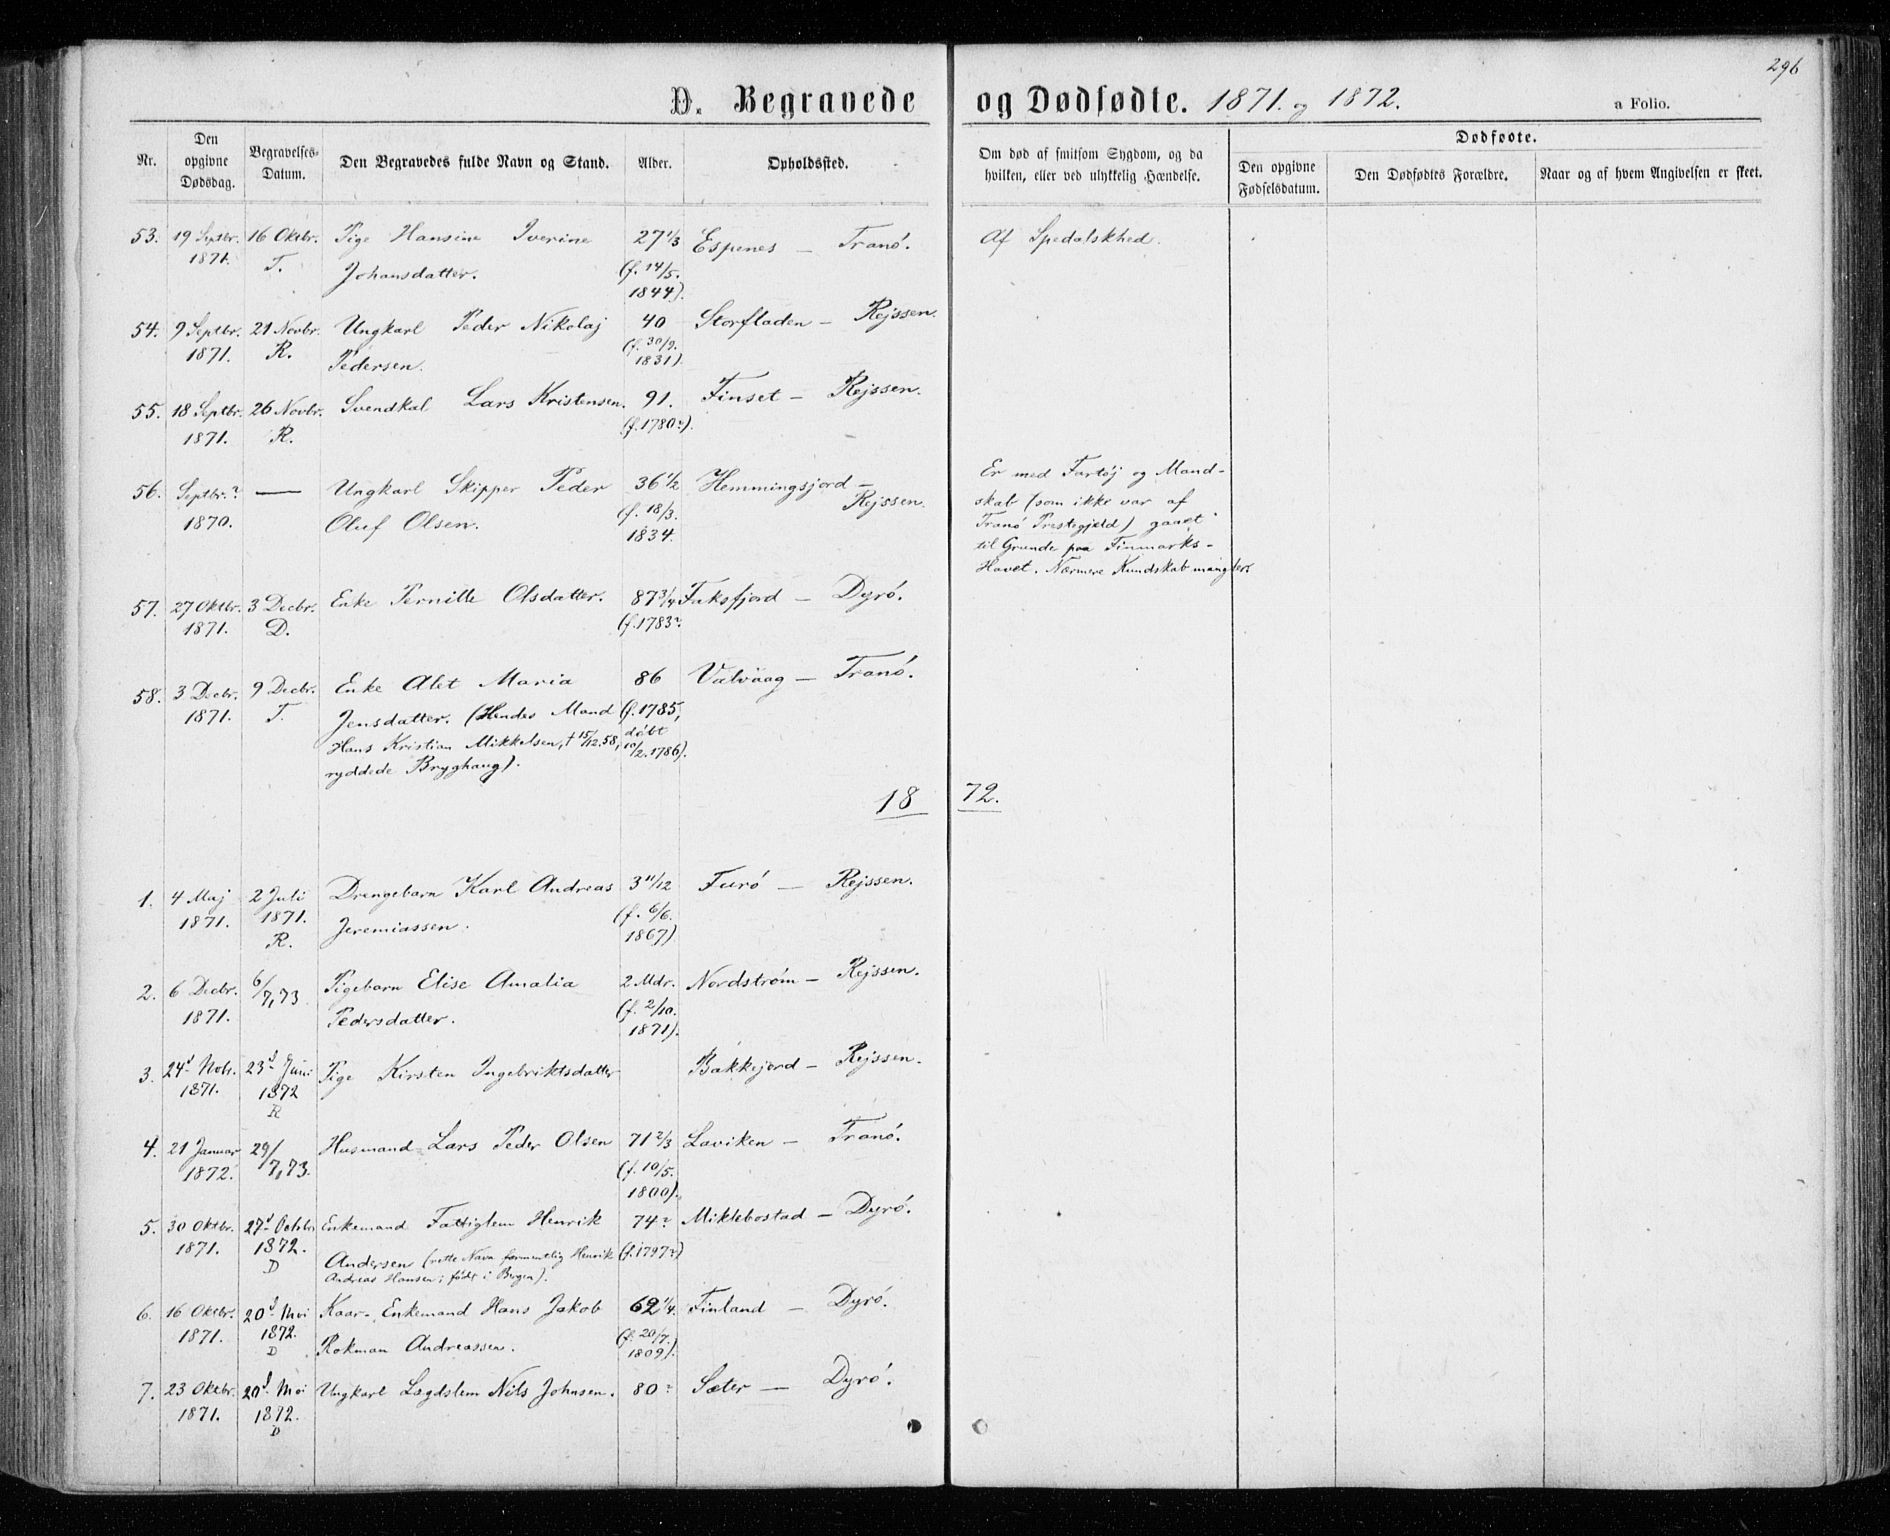 296
D. Begravede og Dødfødte. 1871. og 1872. a Folio.
Nr.
Den opgivne Dødsdag.
Begravelses-Datum.
Den Begravedes fulde Navn og Stand.
Alder.
Opholdssted.
Om død af smitsom Sygdom, og da hvilken, eller ved ulykkelig Hændelse.
Dødfødte.
Den opgivne Fødselsdatum.
Den Dødfødtes Forældre.
Naar og af hvem Angivelsen er skeet.
53. 19 Septbr. 16 Oktbr. Pige Hansine Iverine 27 1/3 Espenes – Tranö. Af Spedalskhed.
1871. T. Johansdatter. (f. 14/5.
1844).
54. 9 Septbr. 21 Novbr. Ungkarl Peder Nikolaj 40 Storfladen – Rejssen.
1871. R. Pedersen. (f. 30/9.
1831).
55. 18 Septbr. 26 Novbr. Svendkal Lars Kristensen. 91. Finset – Rejssen.
1871. R. (f. 1780?).
56. Septbr.? — Ungkarl Skipper Peder 36 1/2 Hemmingsjord – Rejssen.
1870. Oluf Olsen. (f. 18/3.
1834.
Er med Fartöj og Mand-
skab (som ikke var af
Tranö Prestegjæld) gaaet
til Grunde paa Finmarks-
Havet. Nærmere Kundskab mangler.
57. 27 Oktbr. 3 Decbr. Enke Pernille Olsdatter. 87 3/4 Faksfjord – Dyrö.
1871. D. (f. 1783?
58. 3 Decbr. 9 Decbr. Enke Alet Maria 86 Valvaag – Tranö.
1871. T. Jensdatter. (Hendes Mand (f. 1785,
Hans Kristian Mikkelsen, † 15/12.58, döbt
ryddede Bryghaug). 10/2. 1786).
18 72.
1. 4 Maj 2 Juli Drengebarn Karl Andreas 3 11/12 Furö – Rejssen.
1871. 1871. Jeremiassen. (f. 6/6.
R. 1867)
2. 6 Decbr. 6/7,73 Pigebarn Elise Amalia 2 Mdr. Nordström – Rejssen.
1871. Pedersdatter. (f. 2/10.
1871).
3. 24d Nobr. 23d Juni Pige Kirsten Ingebriktsdatter Bakkejord – Rejssen.
1871. 1872
R
4. 21 Januar 29/7,73. Husmand Lars Peder Olsen 71 2/3 Laviken – Tranö.
1872. (f. 10/5.
1800).
5. 30 Oktbr. 27d Octobr Enkemand Fattiglem Henrik 74? Miklebostad – Dyrö.
1871. 1872. Andersen (rette Navn formentlig Henrik (f. 1797?)
D Andreas Hansen; födt i Bergen).
6. 16 Oktbr. 20d Mai Kaar- Enkemand Hans Jakob 62 1/4. Finland – Dyrö.
1871. 1872. Rokman Andreassen. (f. 20/7.
D 1809).
7. 23 Oktbr. 20d Mai Ungkarl Lægdslem Nils Johnsen. 80? Sæter – Dyrö.
1871. 1872.
D